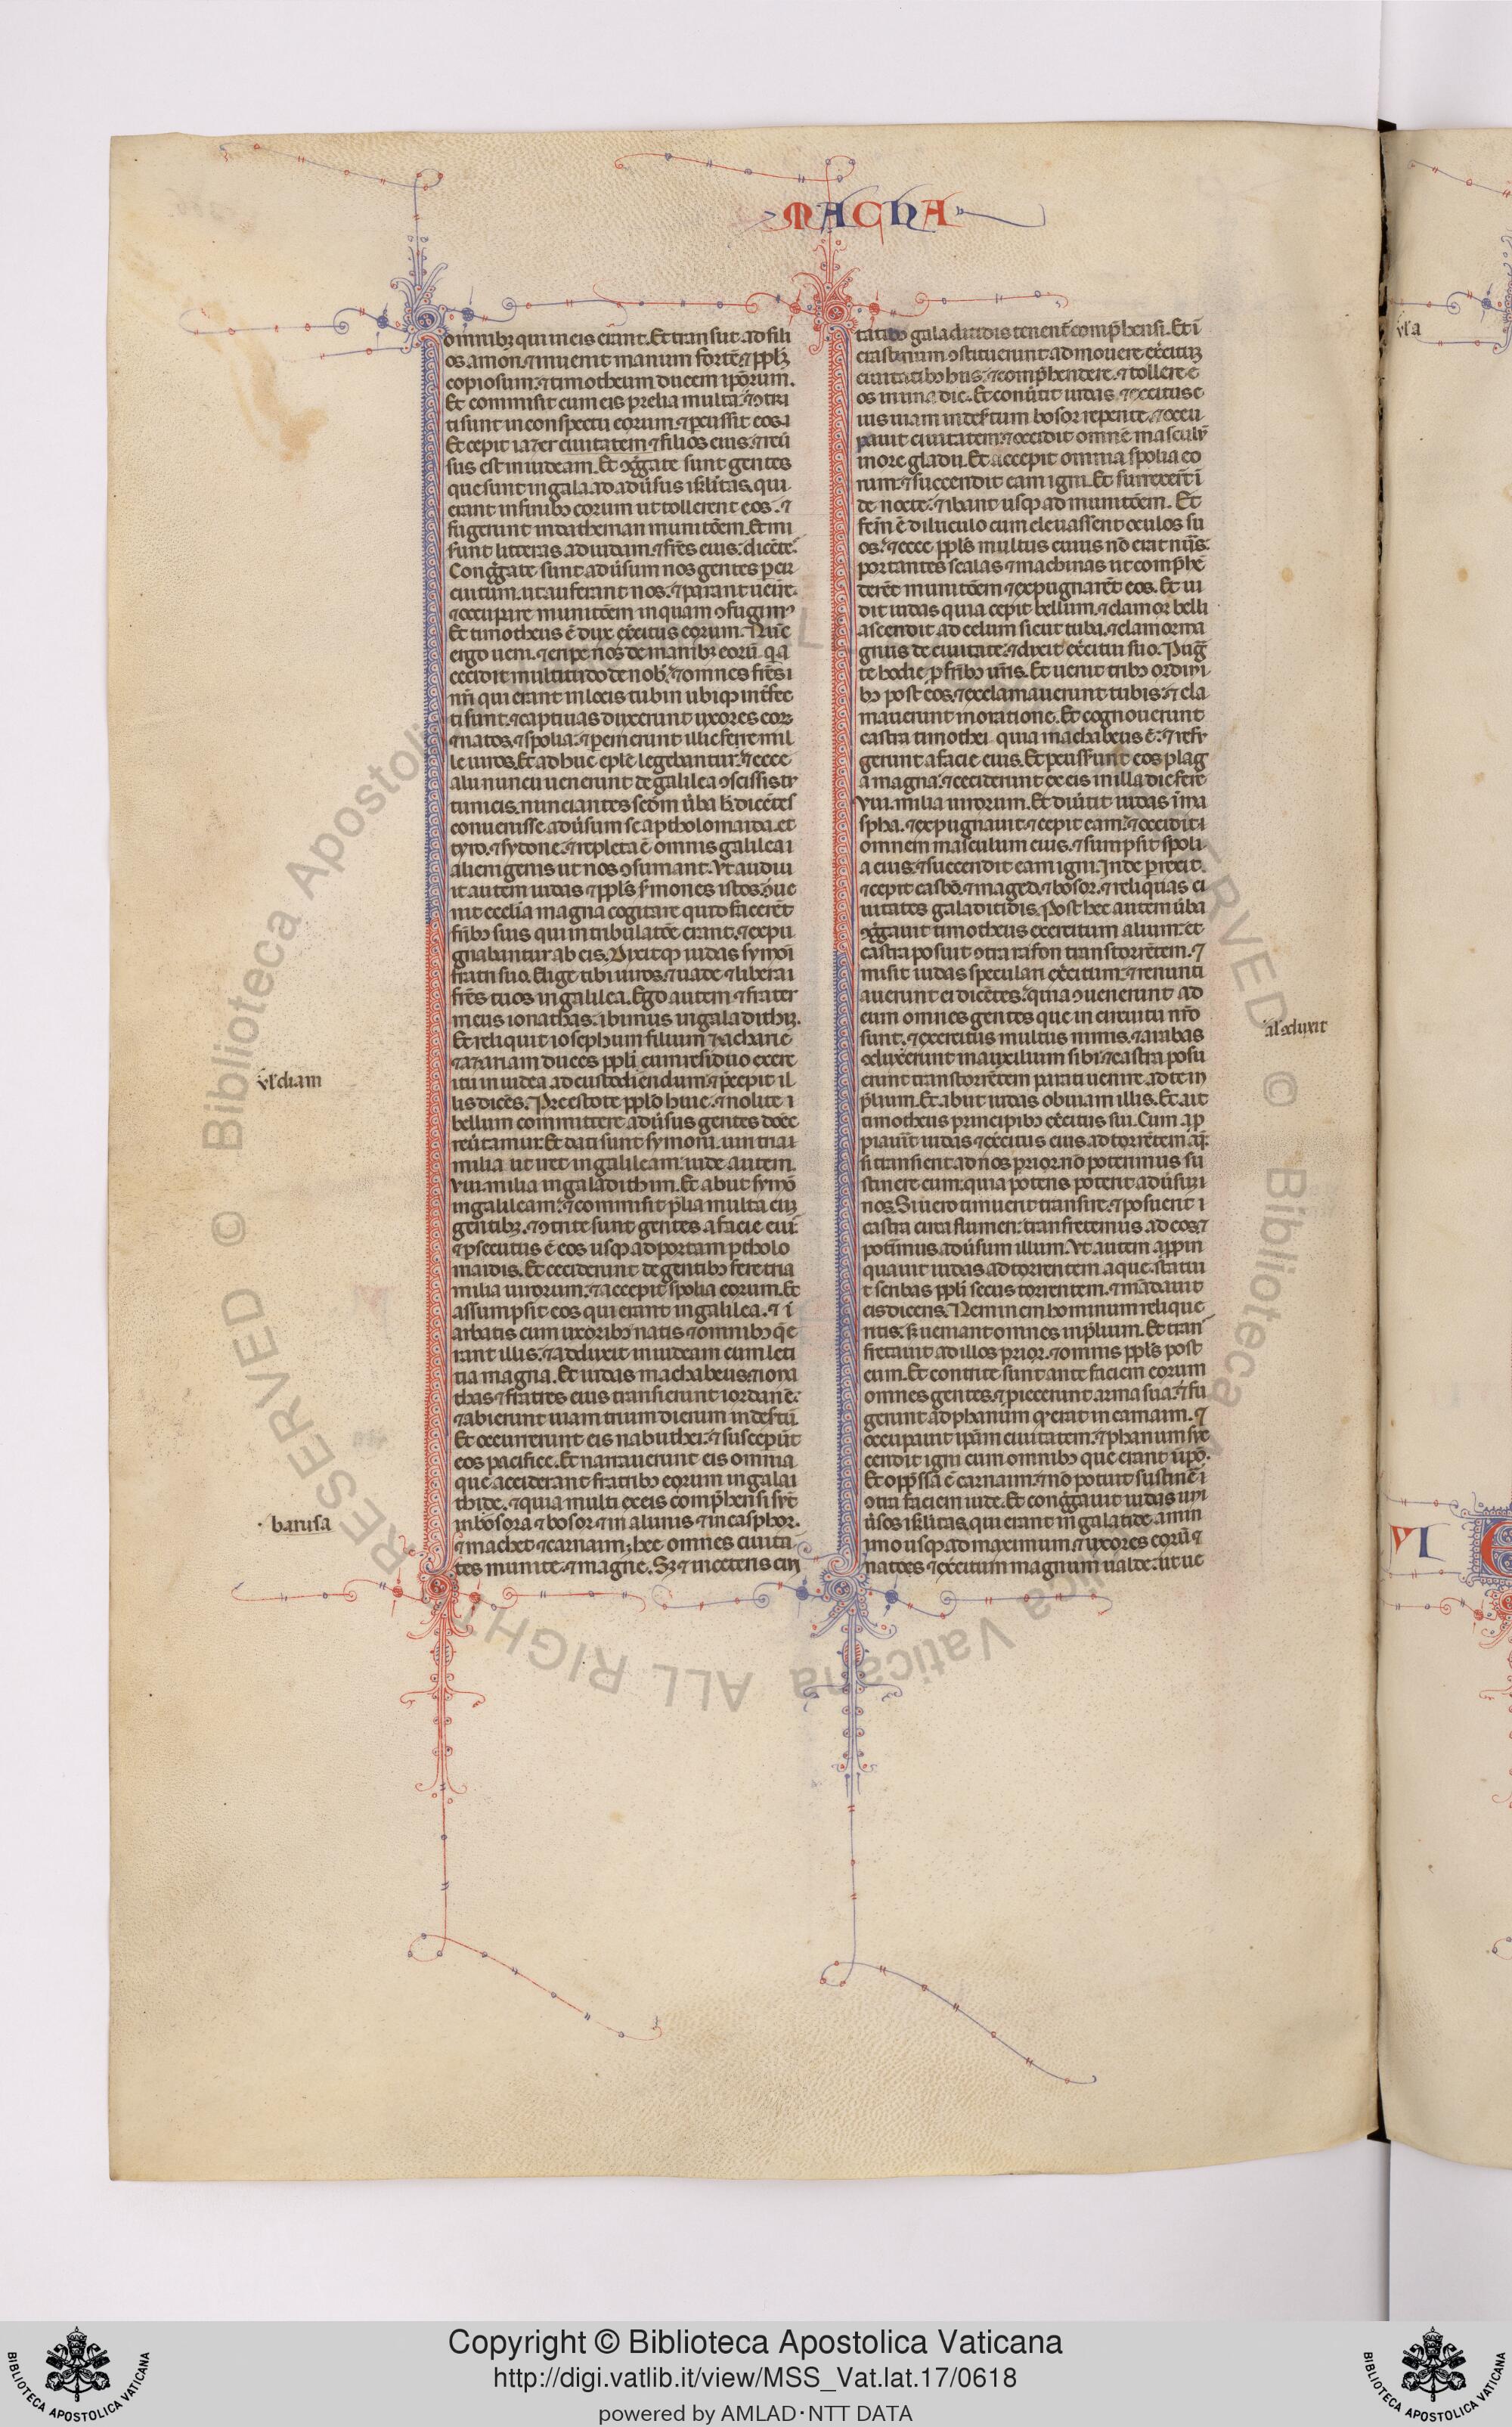 MACHA
omnibꝫ qui in eis erant. Et transiit ad fili
os amon. ⁊ inuenit manum fortē ⁊ pplꝫ
copiosum. ⁊ timotheum ducem ipōrum.
Et commisit cum eis prelia multa. ⁊ ↄtri
ti sunt in conspectu eorum. ⁊ ꝑcussit eos.
Et cepit iazer ciuitatem ⁊ filios eius. ⁊ reũ
sus est in iudeam. Et ↄg̃gate sunt gentes
que sunt in galaad adũsus isr̃litas qui
erant in finibꝰ eorum ut tollerent eos. ⁊
fugerunt in datheman munitōem. Et mi
serunt litteras ad iudam ⁊ fr̃es eius. dicētes
Cong̃gate sunt adũsum nos gentes ꝑ cir
cuitum. ut auferant nos. ⁊ parant uenire
⁊ occupare munitōem in quam ↄfugimꝰ
Et timotheus ē dux ex̃citus eorum. Nūc
ergo ueni. ⁊ eripe nos de manibꝫ eorũ q̃a
cecidit multitudo de nob̃. ⁊ omnes fr̃es
nr̃i qui erant in locis tubin ubiqꝫ int̃fec
ti sunt. ⁊ captiuas duxerunt uxores eorꝝ
⁊ natos. ⁊ spolia. ⁊ ꝑemerunt illic fere mil
le uiros. Et adhuc ep̃le legebantur. ⁊ ecce
alii nuncii uenerunt de galilea ↄscissis
tunicis. nunciantes sc̃dm ũba h̃ dicētes
conuenisse adũsum se a ptholomaida. et
tyro. ⁊ sydone. ⁊ repleta ē omnis galilea
alienigenis ut nos ↄsumant. Vt audiu
it autem iudas ⁊ ppl̃s s̃mones istos. ↄue
nit ecclia magna cogitare quid facerēt
fr̃ibꝰ suis qui in tribulatōe erant. ⁊ expu
gnabantur ab eis. Dixitqꝫ iudas symōi
fratri suo. Elige tibi uiros. ⁊ uade ⁊ libera
fr̃es tuos in galilea. Ego autem ⁊ frater
meus ionathas. ibimus in galadithiꝫ.
Et reliquit iosephum filium zacharie
⁊ azariam duces ppl̃i cum residuo exerc
itu in iudea ad custodiendum. ⁊ p̃cepit il
lis dicēs. Preestote ppl̃o huic. ⁊ nolite
bellum committere adũsus gentes donec
reũtamur. Et dati sunt symoni. uiri tria
milia ut iret in galileam. iude autem
viii. milia in galadithim. Et abiit symō
in galileam. ⁊ commisit p̃lia multa cũ
gentibꝫ. ⁊ ↄtrite sunt gentes a facie eiꝰ
⁊ ꝑsecutus ē eos usqꝫ ad portam ptholo
maidis. Et ceciderunt de gentibꝰ fere tria
milia uirorum. ⁊ accepit spolia eorum. Et
assumpsit eos qui erant in galilea. ⁊ ĩ
arbatis cum uxoribꝰ natis ⁊ omnibꝰ q̃ e
rant illis. ⁊ adduxit in iudeam cum leti
tia magna. Et iudas machabeus ⁊ iona
thas ⁊ fratres eius transierunt iordanē.
⁊ abierunt uiam trium dierum in des̃tũ
Et occurrerunt eis nabuthei. ⁊ suscepũt
eos pacifice. Et narrauerunt eis omnia
que acciderant fratribꝰ eorum in galai
thide. ⁊ quia multi ex eis comp̃hensi sũt
in bosora ⁊ bosor ⁊ in alimis ⁊ in casphor.
⁊ machet ⁊ carnaim. hee omnes ciuita
tes munite. ⁊ magne. Sꝫ ⁊ in ceteris ciui
tatibꝰ galaditidis tenent̃ comp̃hensi. Et ĩ
crastinum ↄstituerunt admouere ex̃citũ
ciuitatibꝰ hiis. ⁊ comp̃hendere. ⁊ tollere e
os in una die. Et conũtit iudas. ⁊ excitus e
ius uiam in des̃tum bosor repente. ⁊ occu
pauit ciuitatem. ⁊ occidit omnē masculũ
in ore gladii. Et accepit omnia spolia eo
rum. ⁊ succendit eam igni. Et surrexer̃t ĩ
de nocte. ⁊ ibant usqꝫ ad munitōem. Et
fc̃m ē diluculo cum eleuassent oculos su
os. ⁊ ecce ppl̃s multus cuius nō erat nũs.
portantes scalas ⁊ machinas ut comp̃hē
derēt munitōem ⁊ expugnarēt eos. Et ui
dit iudas quia cepit bellum. ⁊ clamor belli
ascendit ad celum sicut tuba. ⁊ clamor ma
gnus de ciuitate. ⁊ dixit ex̃citui suo. Pug̃
te hodie ꝓ fr̃ibꝰ ũris. Et uenit tribꝰ ordini
bꝰ post eos. ⁊ exclamauerunt tubis. ⁊ cla
mauerunt in oratione. Et cognouerunt
castra timothei quia machabeus ē. ⁊ refu
gerunt a facie eius. Et ꝑcuss̃unt eos plag
a magna. ⁊ ceciderunt ex eis in illa die fere
viii. milia uirorum. Et diũtit iudas ĩ ma
spha. ⁊ expugnauit. ⁊ cepit eam. ⁊ occidit
omnem masculum eius. ⁊ sumpsit spoli
a eius. ⁊ succendit eam igni. Inde ꝑrexit.
⁊ cepit casbō. ⁊ maged. ⁊ bosor. ⁊ reliquas ci
uitates galaditidis. Post hec autem ũba
ↄg̃gauit timotheus exercitum alium. et
castra posuit ↄtra rafon trans torrētem. ⁊
misit iudas speculari ex̃citum. ⁊ renunti
auerunt ei dicētes. quia ↄuenerunt ad
eum omnes gentes que in circuitu nr̃o
sunt. ⁊ exercitus multus nimis. ⁊ arabas
ↄduxerunt in auxilium sibi. ⁊ castra posu
erunt trans torrētem parati uenire ad te in
p̃lium. Et abiit iudas obuiam illis. Et ait
timotheus principibꝰ ex̃citus sui. Cum apꝓ
piauit iudas ⁊ ex̃citus eius ad torrētem aq̃.
si transierit ad nos prior. nō poterimus su
stinere eum. quia potens poterit adũsum
nos. Si uero timuerit transire. ⁊ posuerit
castra extra flumen. transfretemus ad eos. ⁊
pot̃imus adũsum illum. Vt autem appin
quauit iudas ad torrentem aque. statui
t scribas ppl̃i secus torrentem. ⁊ mādauit
eis dicens. Neminem hominum relique
ritis. s̃ ueniant omnes in p̃lium. Et tran
fretauit ad illos prior. ⁊ omnis ppl̃s post
eum. Et contrite sunt ante faciem eorum
omnes gentes. ⁊ piecerunt arma sua. ⁊ fu
gerunt ad phanum qd̃ erat in carnaim. ⁊
occupauit ip̃am ciuitatem. ⁊ phanum suc
cendit igni cum omnibꝰ que erant ĩ ip̃o.
Et opp̃ssa ē carnaim. ⁊ nō potuit sustinē
ↄtra faciem iude. Et cong̃gauit iudas uni
ũsos isr̃litas qui erant in galatide. a mini
mo usqꝫ ad maximum. ⁊ uxores eorũ ⁊
natoes ⁊ ex̃citum magnum ualde. ut ue
vl̃ diam
barasa
al̃ ↄduxit
vl̃ a
VI
Copyright © Biblioteca Apostolica Vaticana
http://digi.vatlib.it/view/MSS_Vat.lat.17/0618
powered by AMLAD·NTT DATA
BIBLIOTECA APOSTOLICA VATICANA
BIBLIOTECA APOSTOLICA VATICANA
© Biblioteca Apostolica Vaticana ALL RIGHTS RESERVED